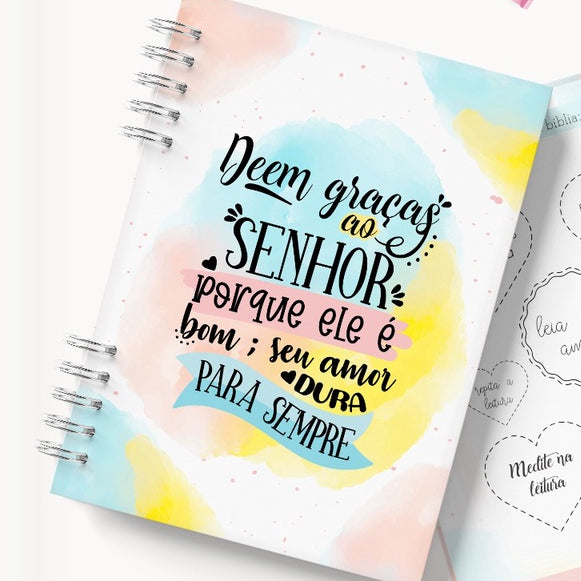 Deem graças
ao
SENHOR
porque ele é
bom ; seu amor
DURA
PARA SEMPRE
biblia
leia
repita a
leitura
Medite na
leitura